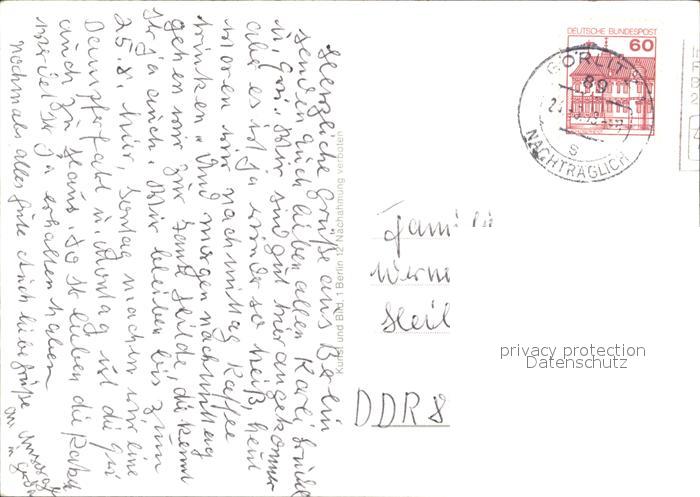 Herzliche Grüße aus Berlin
senden Euch lieben allen
wir sind gut hier angekommen
aber es ist ja wieder so heiß, heut
waren wir nachmittag Kaffee
trinken. Und morgen nachmittag
gehen wir zur Tante Hilde, die kennt
Ihr ja auch. Wir bleiben bis zum
25.8. hier, Sonntag machen wir eine
Dampferfahrt u. Montag ist die
auch zu Haus. So Ihr lieben die
habt Ihr ja erhalten
nochmals alles gute Euch liebe Grüße
Kunst und Bild, 1 Berlin 12 Nachahmung verboten
DEUTSCHE BUNDESPOST
60
GÖRLITZ
89
s
NACHTRÄGLICH
Fam
Werne
Heil
DDR 8
privacy protection
Datenschutz